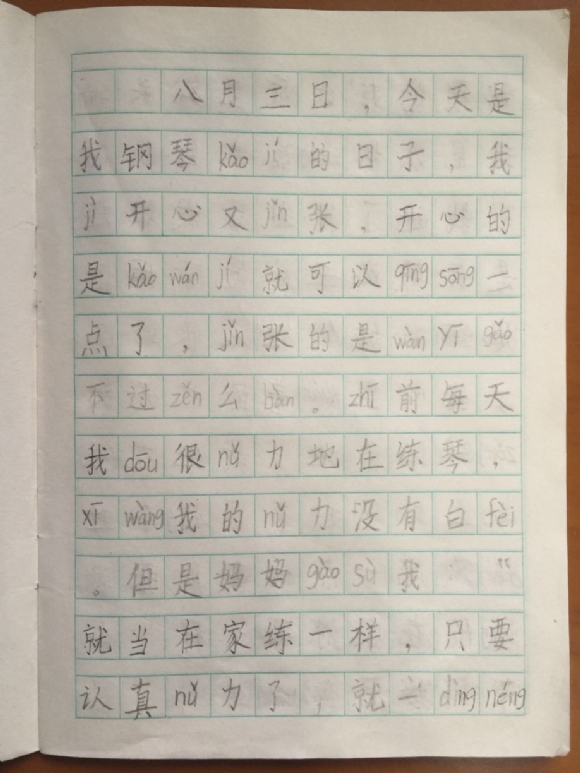 八月三日，今天是
我钢琴kǎo jí的日子，我
jì开心又jǐn张，开心的
是kǎo wán jí就可以qīng sōng一
点了，jǐn张的是wàn yī gǎo
不过zěn么bàn。zhī前每天
我dōu很nǔ力地在练琴，
xī wàng我的nǔ力没有白fèi
。但是妈妈gào sù我：“
就当在家练一样，只要
认真nǔ力了，就一dìng néng